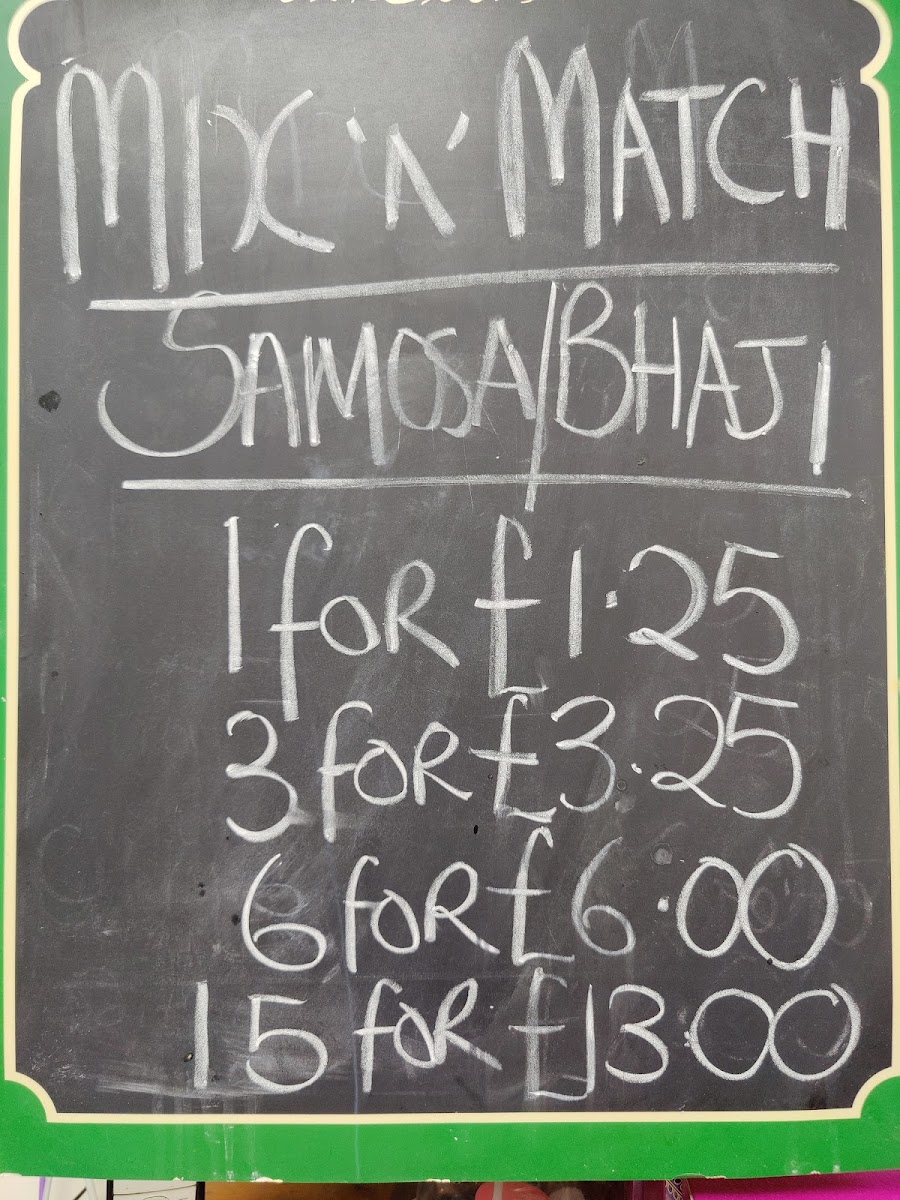 MIX 'N' MATCH
SAMOSA/BHAJI
1 for £1.25
3 for £3.25
6 for £6.00
15 for £13.00